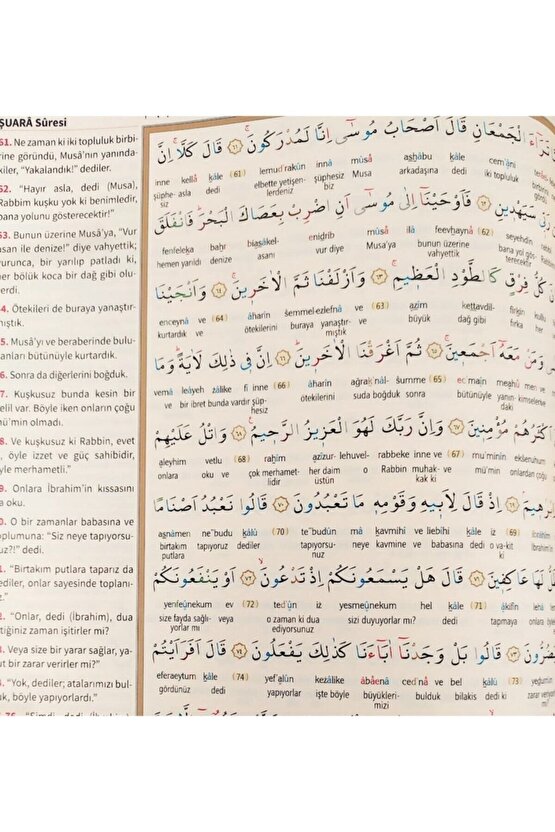 ŞUARÂ Sûresi
61. Ne zaman ki iki topluluk birbi-
rine göründü, Musâ'nın yanında-
kiler, "Yakalandık!" dediler.
62. "Hayır asla, dedi (Musa),
Rabbim kuşku yok ki benimledir,
bana yolunu gösterecektir!"
63. Bunun üzerine Musâ'ya, "Vur
asan ile denize!" diye vahyettik;
vurunca, bir yarılıp patladı ki,
her bölük koca bir dağ gibi olu-
verdi.
4. Ötekileri de buraya yanaştır-
mıştık.
5. Musâ'yı ve beraberinde bulu-
nanları bütünüyle kurtardık.
6. Sonra da diğerlerini boğduk.
7. Kuşkusuz bunda kesin bir
delil var. Böyle iken onların çoğu
mü'min olmadı.
8. Ve kuşkusuz ki Rabbin, evet
öyle izzet ve güç sahibidir,
öyle merhametli."
9. Onlara İbrahim'in kıssasını
da oku.
0. O bir zamanlar babasına ve
toplumuna: "Siz neye tapıyorsu-
nuz?!" dedi.
1. "Birtakım putlara taparız da
dediler, onlar sayesinde toplanı-
2. "Onlar, dedi (İbrahim), dua
ettiğiniz zaman işitirler mi?
3. Veya size bir yarar sağlar, ya-
hut bir zarar verirler mi?"
4. "Yok, dediler; atalarımızı bul-
duk, böyle yapıyorlardı."
تَرَٓاءَ الْجَمْعَانِ قَالَ اَصْحَابُ مُوسٰٓى اِنَّا لَمُدْرَكُونَۚ ﴿٦١﴾ قَالَ كَلَّاۚ اِنَّ
inne kellâ kâle (61) lemudrakûn innâ mûsâ aṣḥâbu kâle cem'âni
şüphe- asla dedi elbette yetişen- şüphesiz Musa arkadaşına dedi iki topluluk
siz lerdeniz biz
رَبّٖي سَيَهْدٖينِ ﴿٦٢﴾ فَاَوْحَيْنَٓا اِلٰى مُوسٰٓى اَنِ اضْرِبْ بِعَصَاكَ الْبَحْرَۜ فَانْفَلَقَ
fenfeleḳa baḥr biaṣâkel- eniḍrib mûsâ ilâ feevḥaynâ (62) seyehdîn
hemen yarıldı denize asanı vur diye Musa'ya bunun üzerine bana yol gös-
vahyettik terecektir
كُلُّ فِرْقٍ كَالطَّوْدِ الْعَظٖيمِۚ ﴿٦٣﴾ وَاَزْلَفْنَا ثَمَّ الْاٰخَرٖينَۚ ﴿٦٤﴾ وَاَنْجَيْنَا
enceynâ ve (64) âharîn s̱emmel-ezlefnâ ve (63) aẓîm keṭṭavdil- firḳin kullu
kurtardık ve ötekilerini buraya yanaştır- ve büyük dağ gibi fırka her
mıştık
وَمَنْ مَعَهُٓ اَجْمَعٖينَۚ ﴿٦٥﴾ ثُمَّ اَغْرَقْنَا الْاٰخَرٖينَۜ ﴿٦٦﴾ اِنَّ فٖي ذٰلِكَ لَاٰيَةًۜ وَمَا
vemâ leâyeh zâlike fî inne (66) âharîn ağraḳnâl-s̱umme (65) ecmaîn meahû men ve
ve bir ibret bunda vardır şüp- ötekilerini suda boğduk sonra bütünüyle yanın- kimseler ve
hesiz daki
اَكْثَرُهُمْ مُؤْمِنٖينَ ﴿٦٧﴾ وَاِنَّ رَبَّكَ لَهُوَ الْعَزٖيزُ الرَّحٖيمُ۟ ﴿٦٨﴾ وَاتْلُ عَلَيْهِمْ
aleyhim vetlu (68) raḥîm azîzur- lehuvel- rabbeke inne ve (67) mu'minîn eks̱eruhum
onlara oku ve çok merhamet- her daim o Rabbin muhak- ve mü'min onlardan çoğu
lidir üstün kak ki
اِذْ قَالَ لِاَبٖيهِ وَقَوْمِهٖ مَا تَعْبُدُونَ ﴿٧٠﴾ قَالُوا نَعْبُدُ اَصْنَامًا
aṣnâmen ne'budu ḳâlû (70) te'budûn mâ ḳavmihî ve liebîhi ḳâle iz (69) ibrâhîm
birtakım tapıyoruz dediler tapıyorsu- neye kavmine ve babasına dedi o va-kit İbrahim'in
putlara nuz
لَهَا عَاكِفٖينَ ﴿٧١﴾ قَالَ هَلْ يَسْمَعُونَكُمْ اِذْ تَدْعُونَۙ ﴿٧٢﴾ اَوْ يَنْفَعُونَكُمْ
yenfeûnekum ev (72) ted'ûn iz yesmeûnekum hel ḳâle (71) âkifîn lehâ
size fayda sağlı- veya o zaman ki dua sizi duyuyorlar mı? dedi tapmaya onlara
yorlar mı ediyorsunuz
يَضُرُّونَ ﴿٧٣﴾ قَالُوا بَلْ وَجَدْنَٓا اٰبَٓاءَنَا كَذٰلِكَ يَفْعَلُونَ ﴿٧٤﴾ قَالَ اَفَرَاَيْتُمْ
eferaeytum ḳâle (74) yef'alûn kezâlike âbâenâ cednâ ve bel ḳâlû (73) yeḍurrûn
gördünüz dedi yapıyorlar işte böyle büyükleri- bulduk bilakis dedi ki zarar veriyor
mizi